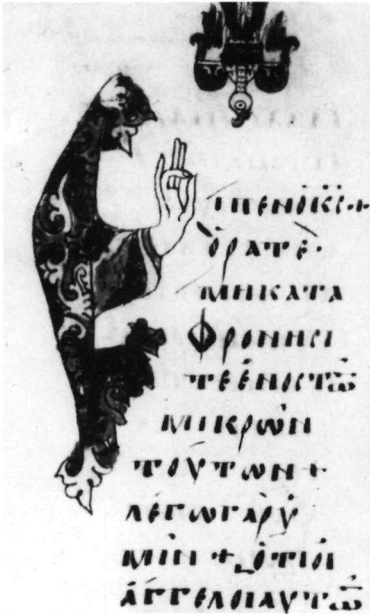 ΕΙΠΕΝ Ο Κ̅Ϲ̅·+
ὉΡΑΤΕ·
ΜΗ ΚΑΤΑ
ΦΡΟΝΗϹΙ
ΤΕ ἙΝΟϹ ΤΩ̅
ΜΙΚΡΩ͂Ν
ΤΟΎΤΩΝ +
ΛΈΓΩ ΓᾺΡ Ὑ
ΜΙ͂Ν + ὍΤΙ ΟἹ
Ἄ́ΓΓΕΛΟΙ ΑΥ̓ΤΩ̅